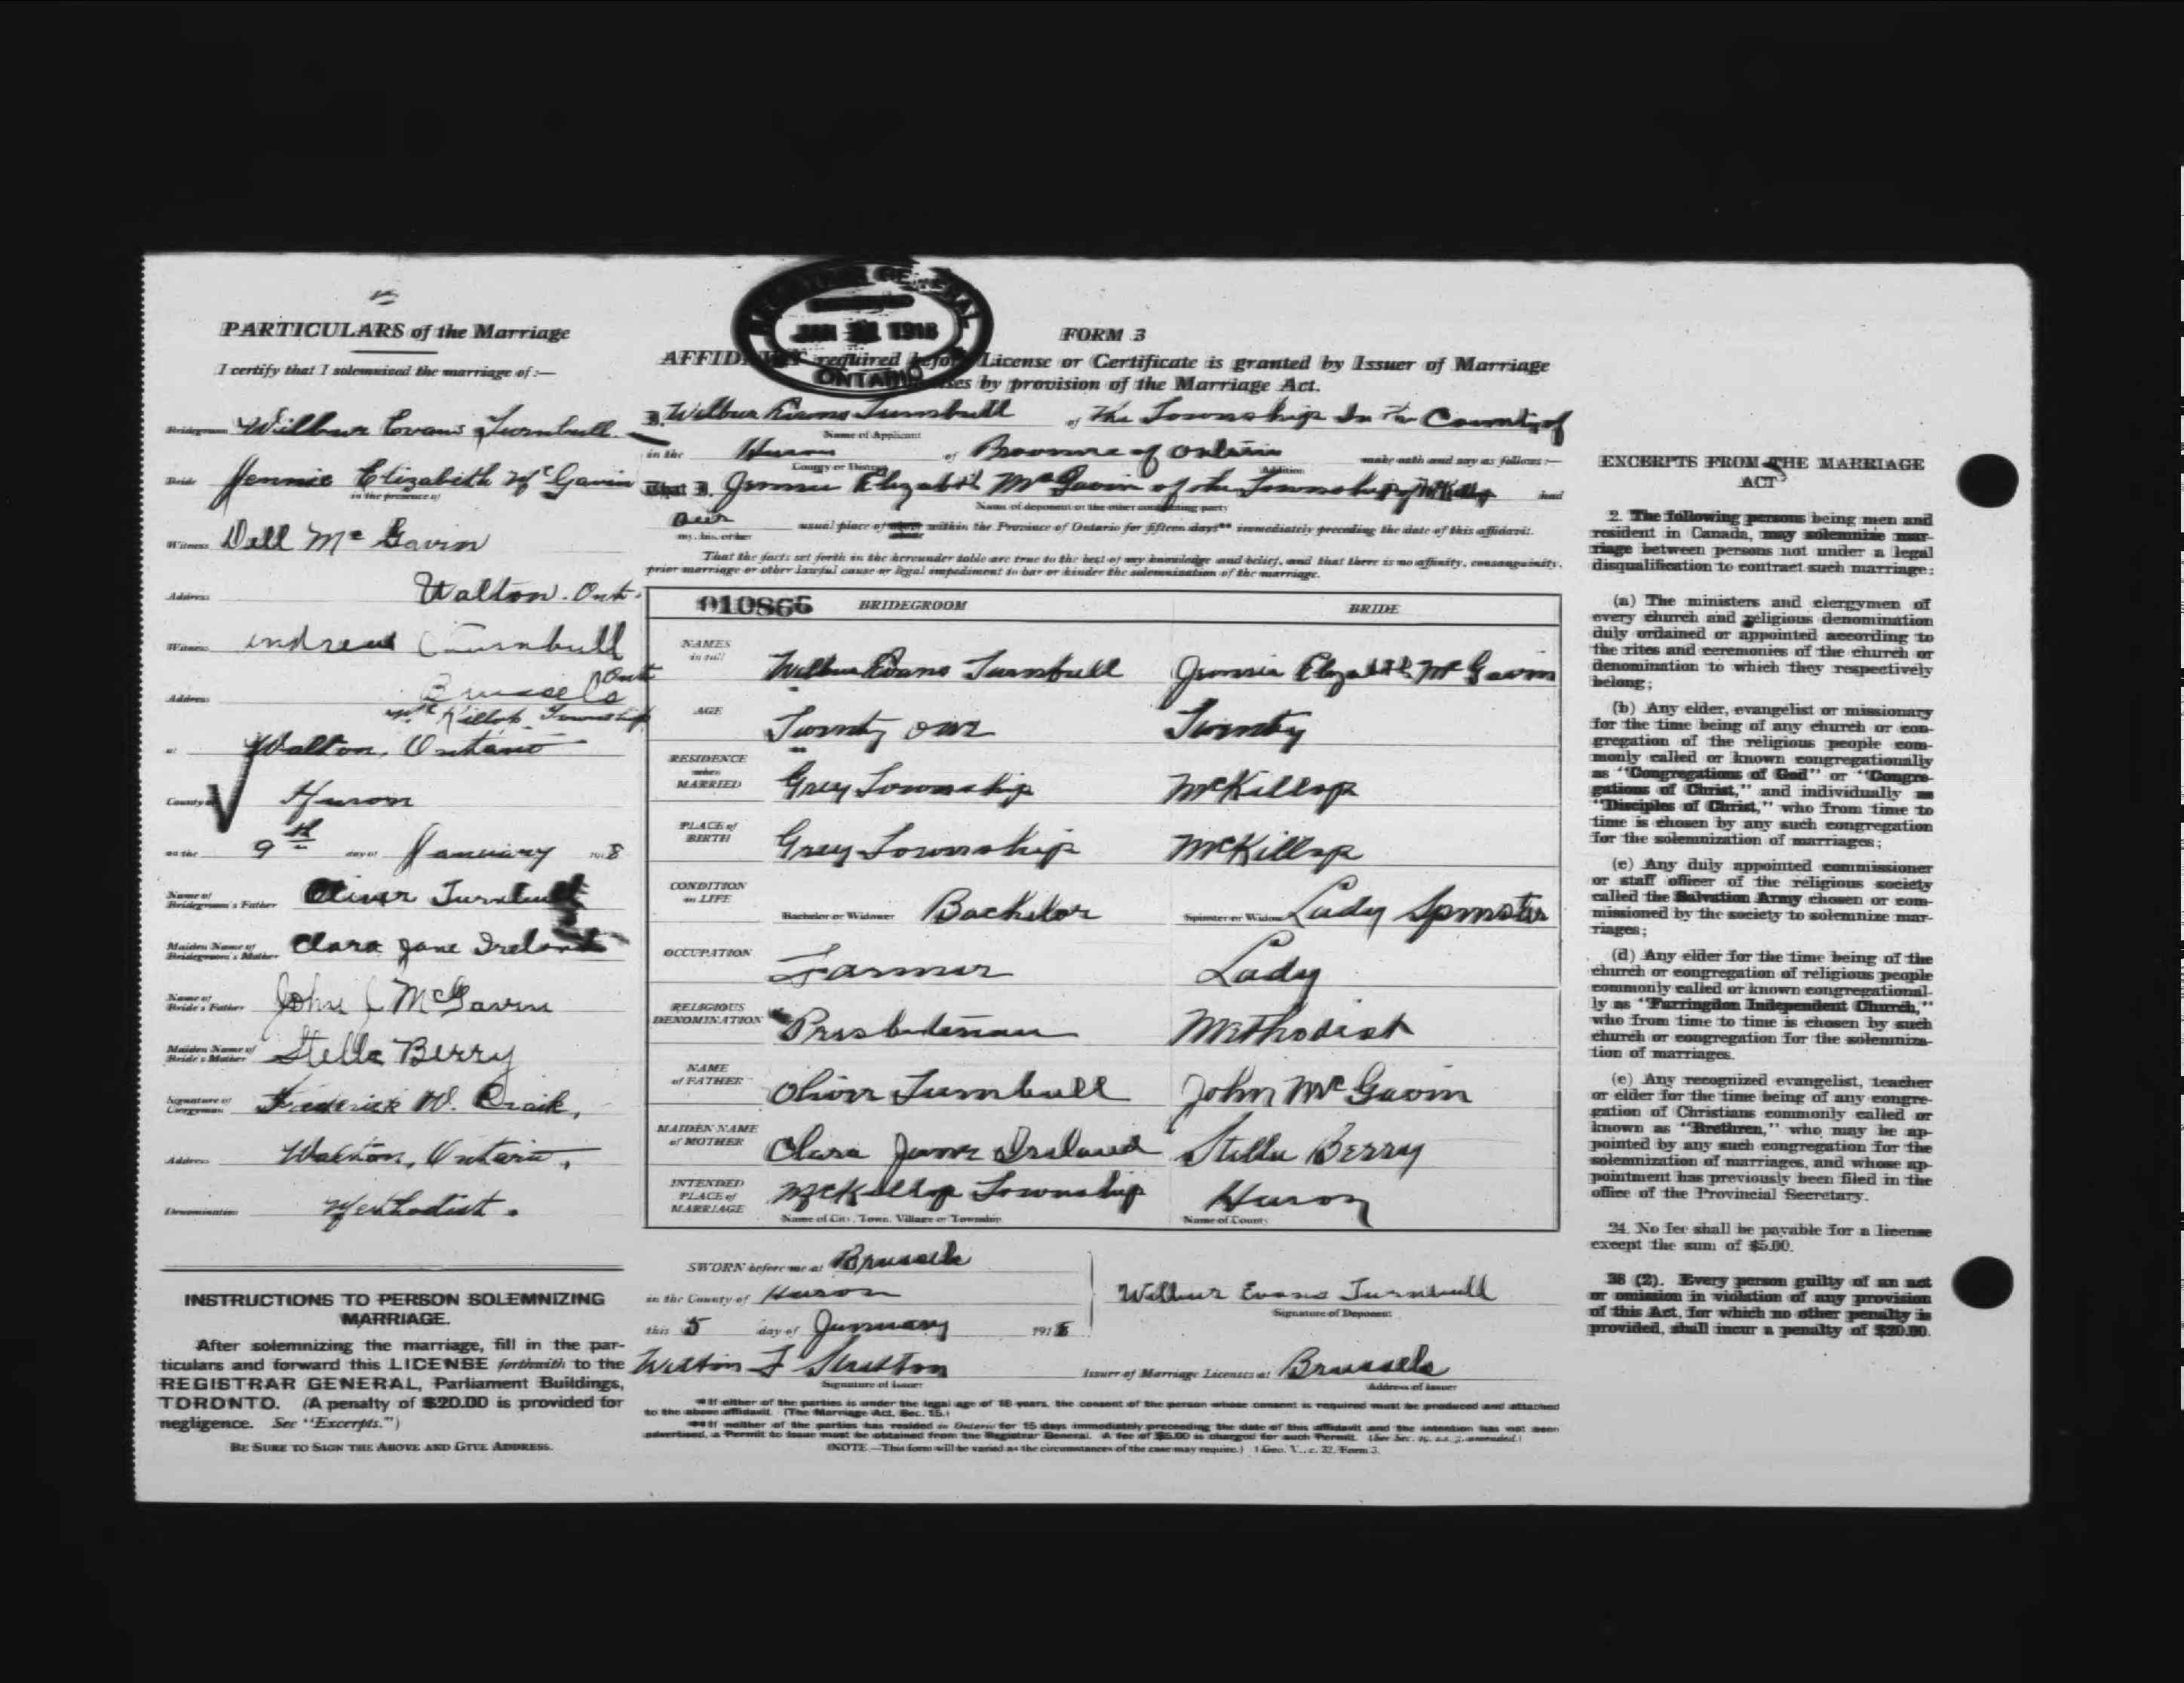 PARTICULARS of the Marriage
I certify that I solemnized the marriage of:—
Bridegroom Wilbur Evans Turnbull
Bride Jennie Elizabeth McGavin
in the presence of
Witness Dell McGavin
Address Walton. Ont.
Witness Andrew Turnbull
Address Brussels Ont
McKillop Township
at Walton, Ontario
County of Huron
on the 9th day of January 1918
Name of Bridegroom's Father Oliver Turnbull
Maiden Name of Bridegroom's Mother Clara Jane Ireland
Name of Bride's Father John J McGavin
Maiden Name of Bride's Mother Stella Berry
Signature of Clergyman Frederick W. Craik,
Address Walton, Ontario,
Denomination Methodist.
INSTRUCTIONS TO PERSON SOLEMNIZING
MARRIAGE.
After solemnizing the marriage, fill in the par-
ticulars and forward this LICENSE forthwith to the
REGISTRAR GENERAL, Parliament Buildings,
TORONTO. (A penalty of $20.00 is provided for
negligence. See "Excerpts.")
BE SURE TO SIGN THE ABOVE AND GIVE ADDRESS.
REGISTRAR GENERAL
JAN 1918
ONTARIO
FORM 3
AFFIDAVIT required before License or Certificate is granted by Issuer of Marriage
Licenses by provision of the Marriage Act.
I, Wilbur Evans Turnbull of The Township In The County of
Name of Applicant
in the Huron of Province of Ontario make oath and say as follows:—
County or District Addition
That I, Jennie Elizabeth McGavin of the Township of McKillop had
Name of deponent or the other contracting party
her usual place of abode within the Province of Ontario for fifteen days** immediately preceding the date of this affidavit.
my, his, or her
That the facts set forth in the hereunder table are true to the best of my knowledge and belief, and that there is no affinity, consanguinity,
prior marriage or other lawful cause or legal impediment to bar or hinder the solemnization of the marriage.
010866 BRIDEGROOM BRIDE
NAMES in full Wilbur Evans Turnbull Jennie Elizabeth McGavin
AGE Twenty one Twenty
RESIDENCE when MARRIED Grey Township McKillop
PLACE of BIRTH Grey Township McKillop
CONDITION in LIFE Bachelor or Widower Bachelor Spinster or Widow Lady Spinster
OCCUPATION Farmer Lady
RELIGIOUS DENOMINATION Presbeterian Methodist
NAME of FATHER Oliver Turnbull John McGavin
MAIDEN NAME of MOTHER Clara Jane Ireland Stella Berry
INTENDED PLACE of MARRIAGE McKillop Township Huron
Name of City, Town, Village or Township Name of County
SWORN before me at Brussels
in the County of Huron Wilbur Evans Turnbull
Signature of Deponent
this 5 day of January 1918
F Stretton Issuer of Marriage Licenses at Brussels
Signature of Issuer Address of Issuer
*If either of the parties is under the legal age of 18 years, the consent of the person whose consent is required must be produced and attached
to the above affidavit. (The Marriage Act, Sec. 15.)
**If neither of the parties has resided in Ontario for 15 days immediately preceding the date of this affidavit and the intention has not been
advertised, a Permit to issue must be obtained from the Registrar General. A fee of $5.00 is charged for such Permit.
(NOTE—This form will be varied as the circumstances of the case may require.) 1 Geo. V., c. 32, Form 3.
EXCERPTS FROM THE MARRIAGE
ACT
2. The following persons being men and
resident in Canada, may solemnize mar-
riage between persons not under a legal
disqualification to contract such marriage:
(a) The ministers and clergymen of
every church and religious denomination
duly ordained or appointed according to
the rites and ceremonies of the church or
denomination to which they respectively
belong;
(b) Any elder, evangelist or missionary
for the time being of any church or con-
gregation of the religious people com-
monly called or known congregationally
as "Congregations of God" or "Congre-
gations of Christ," and individually as
"Disciples of Christ," who from time to
time is chosen by any such congregation
for the solemnization of marriages;
(c) Any duly appointed commissioner
or staff officer of the religious society
called the Salvation Army chosen or com-
missioned by the society to solemnize mar-
riages;
(d) Any elder for the time being of the
church or congregation of religious people
commonly called or known congregational-
ly as "Farringdon Independent Church,"
who from time to time is chosen by such
church or congregation for the solemniza-
tion of marriages.
(e) Any recognized evangelist, teacher
or elder for the time being of any congre-
gation of Christians commonly called or
known as "Brethren," who may be ap-
pointed by any such congregation for the
solemnization of marriages, and whose ap-
pointment has previously been filed in the
office of the Provincial Secretary.
24. No fee shall be payable for a license
except the sum of $5.00.
38 (2). Every person guilty of an act
or omission in violation of any provision
of this Act, for which no other penalty is
provided, shall incur a penalty of $20.00.